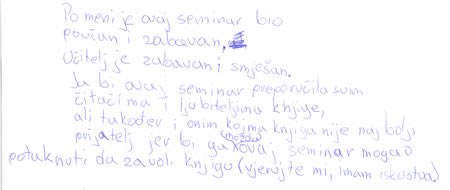 Po meni je ovaj seminar bio
poučan i zabavan.
Učitelj je zabavan i smješan.
Ja bi ovaj seminar preporučila svim
čitačima i ljubiteljima knjige,
ali također i onim kojma knjiga nije najbolji
prijatelj jer bi ga možda ovaj seminar mogao
potaknuti da zavoli knjigu (vjerujte mi, imam iskustva)